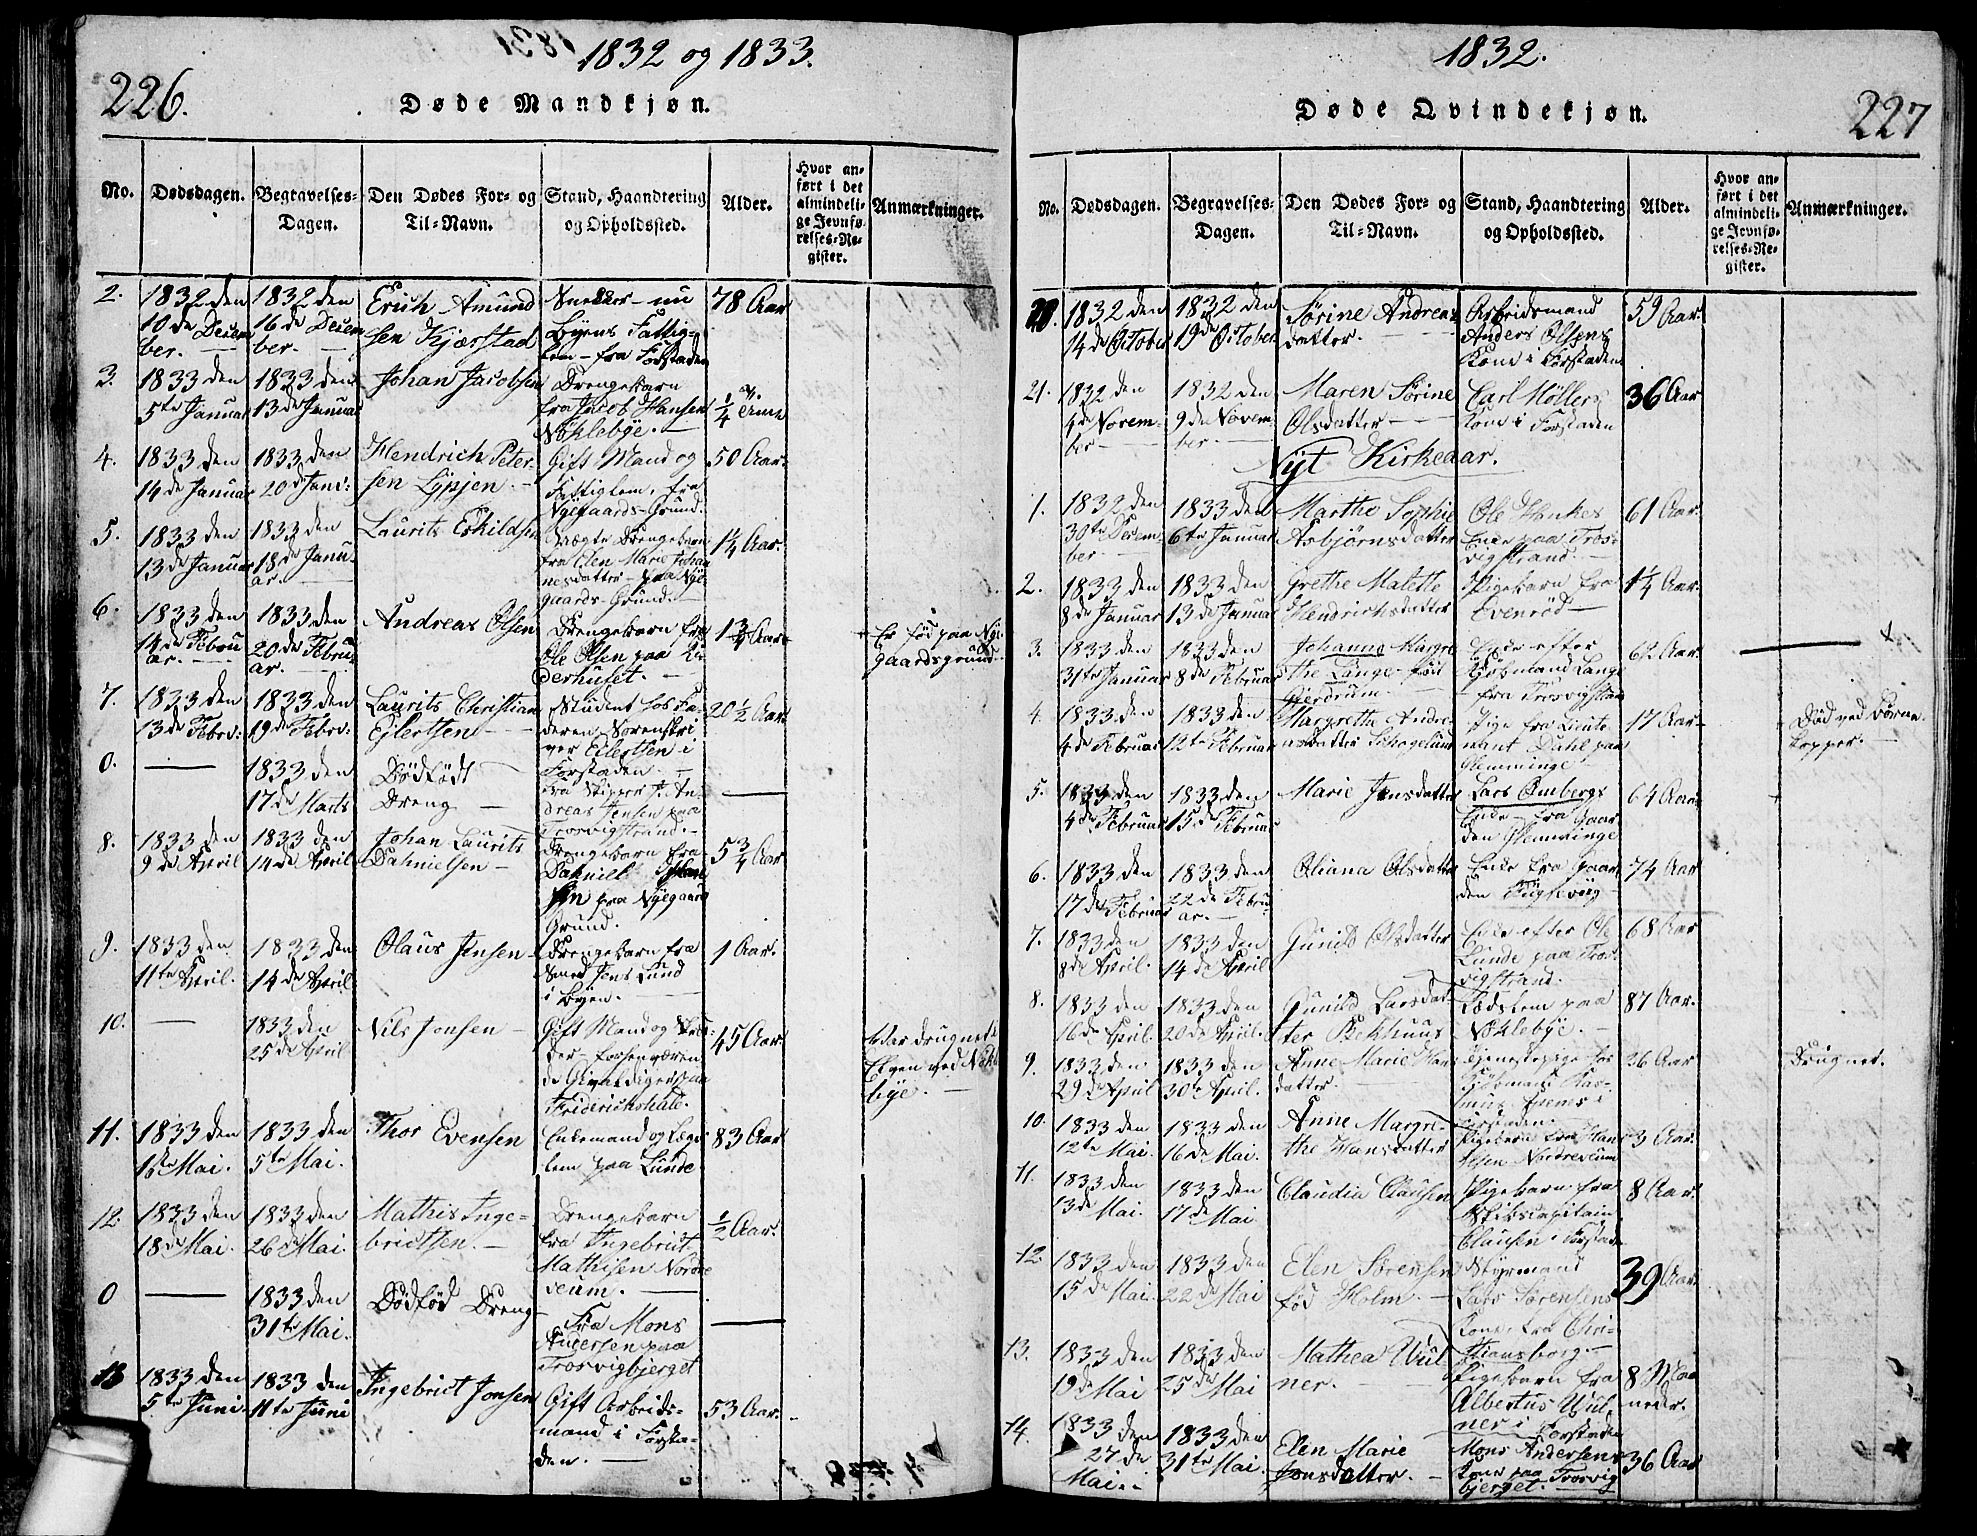 1832 og 1833.
226.
Døde Mandkjøn.
No.
Dødsdagen.
Begravelses-
Dagen.
Den Dødes For- og
Til-Navn.
Stand, Haandtering
og Opholdssted.
Alder.
Hvor an-
ført i det
almindeli-
ge Jevnfø-
relses-Re-
gister.
Anmærkninger.
2.
1832 den
10de Decem
ber.
1832 den
16de Decem
ber.
Erich Amund
sen Kjærstad
Snekker - nu
Byens Fattig-
lem - fra Forstaden
78 Aar
3.
1833 den
5te Januar
1833 den
13de Januar
Johan Jacobsen
Drengebarn
fra Jacob Hansen
Nöklebye.
1/4
4.
1833 den
14de Januar
1833 den
20de Janu:
Hendrich Peter-
sen
Gift Mand og
Fattiglem, fra
Nÿegaards-Grund.
50 Aar.
5.
1833 den
13de Januar
1833 den
18de Janu-
ar.
Laurits Eskildsen
Uægte Drengebarn
fra Elen Marie Johan
nesdatter - paa Nÿe-
gaards-Grund.
1 1/4 Aar.
6.
1833 den
14de Febru
ar.
1833 den
20de Febru
ar.
Andreas Olsen
Drengebarn fra
Ole Olsen paa
derhuset.
1 3/4 Aar
Er fød paa Nÿe
gaardsgrund
7.
1833 den
13de Febr:
1833 den
19de Febr:
Laurits Christian
Ejlertsen
Student hos Fa-
deren Sorenskri
ver Eilertsen i
Forstaden.
20 1/2 Aar
0.
1833 den
17de Marts
Dödfödt
Dreng
fra Skipper J. An
dreas Jensen paa
Trosvigstrand.
8.
1833 den
9de April
1833 den
14de April
Johan Laurits
Dahnielsen
Drengebarn fra
Dahniel
sen paa Nÿegaards
Grund.
5 3/4 Aar
9.
1833 den
11te April.
1833 den
14de April
Olaus Jensen
Drengebarn fra
Smed Jens Lund
i Byen.
1 Aar.
10.
1833 den
25de April
Nils Jonsen
Gift Mand og
der - forhenværen
de Gevaldiger paa
Friderichshald.
45 Aar
Var drugnet i
Elven ved Nökle
bye.
11.
1833 den
Mai.
1833 den
5te Mai.
Thor Evensen
Enkemand og Lægs
lem paa Lunde
83 Aar
12.
1833 den
18de Mai.
1833 den
26de Mai.
Mathis Inge-
brictsen.
Drengebarn
fra Ingebrict
Mathisen Nordre
veum.
1/2 Aar.
0
1833 den
31te Mai.
Dödfød Dreng
Fra Mons
Andersen paa
Trosvigbjerget
13
1833 den
5te Juni.
1833 den
11te Juni
Ingebrict Jonsen
Gift Arbeids-
mand i Forsta-
den.
53 Aar.
1832.
227
Døde Qvindekjøn.
No.
Dødsdagen.
Begravelses-
Dagen.
Den Dødes For- og
Til-Navn.
Stand, Haandtering
og Opholdssted.
Alder.
Hvor an-
ført i det
almindeli-
ge Jevnfø-
relses-Re-
gister.
Anmærkninger.
20.
1832 den
14de October
1832 den
19de October
Sørine Andreas
datter.
Arbeidsmand
Anders Olsens
Kone i Forstaden
59 Aar.
21.
1832 den
4de Novem-
ber
1832 den
9de Novem
ber.
Maren Sørine
Olsdatter
Carl Möllers
Kone i Forstaden
36 Aar
Nÿt Kirkeaar.
1.
1832 den
30te Decem
ber
1833 den
6te Januar
Marthe Sophie
Asbjørnsdatter
Ole Hankes
Enke paa Tros-
vigstrand.
61 Aar.
2.
1833 den
8de Januar
1833 den
13de Januar
Grethe Malette
Hendrichsdatter
Pigebarn fra
Evenröd
1 1/4 Aar.
3.
1833 den
31te Januar
1833 den
8de Februar
Johanne Margre
the Lange fød
Gjerdrum
Enke efter
Kjöbmand Lange
fra Trosvigstran
62 Aar.
4.
1833 den
4de Februar
1833 den
12te Februar
Margrethe Andre-
asdatter
Pige fra Lieute
nant Dahl paa
Glemminge
17 Aar
Död ved Börne-
kopper.
5.
1833 den
4de Februar
1833 den
15de Februar
Marie Jensdatter
Lars Ambergs
Enke - fra Gaar
den Glemminge
64 Aar
6.
1833 den
17de Februar
1833 den
22de Febru
ar.
Oliana Olsdatter
Enke fra Gaar
den Fuglevig
74 Aar
7.
1833 den
8de April.
1833 den
14de April
Gunild Olsdatter
Enke efter Ole
Lunde paa Tros-
vigstrand.
68 Aar
8.
1833 den
16de April.
1833 den
20de April.
Gunild Larsdat-
ter Bekhuus
Lædslem paa
Nöklebÿe.
87 Aar.
9.
1833 den
29de April
1833 den
30te April.
Anne Marie Han
datter.
Tjenestepige hos
Kjöbmand Ras-
mus
Forstaden.
36 Aar
Drugnet.
10.
1833 den
12te Mai.
1833 den
16de Mai.
Anne Margre-
the Hansdatter
Pigebarn fra Hans
Nordreveum
3 Aar.
11.
1833 den
13de Mai.
1833 den
17de Mai
Claudia Clausen
Pigebarn fra
Skibscapitain
Clausen i Forstaden
8 Aar.
12
1833 den
15de Mai.
1833 den
22de Mai
Elen Sörensen
fød Holm.
Styrmand
Lars Sörensens
Kone, fra Chri-
stiansborg.
39 Aar.
13.
1833 den
19de Mai
1833 den
25de Mai
Mathea Wul
ner.
Pigebarn fra
Albertus Wul-
ner i Forstaden
8 Maa
neder.
14.
1833 den
27de
Mai.
1833 den
31te Mai.
Elen Marie
Jonsdatter.
Mons Andersens
Kone paa Trosvig
bjerget.
36 Aar